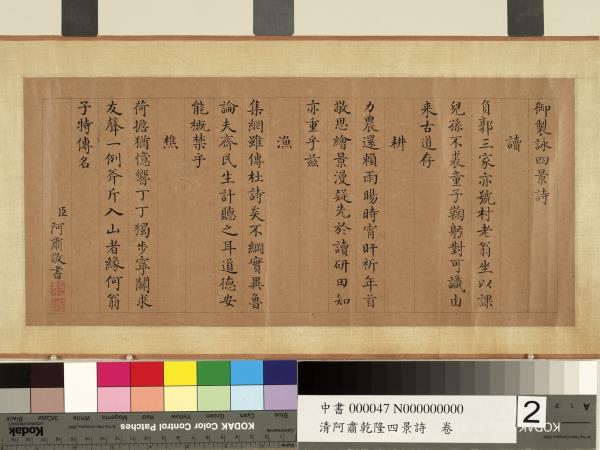 御製詠四景詩
讀
負郭三家亦號村老翁坐以課
兒孫不裘童子鞠躬對可識由
来古道存
耕
力農還賴雨暘時宵旰祈年首
敬思繪景漫疑先於讀研田知
亦重乎玆
漁
集網雖傳杜詩矣不綱實異魯
論夫齊民生計聽之耳道德安
能概禁乎
樵
荷擔猶憶響丁丁獨步寧關求
友聲一例斧斤入山者緣何翁
子特傳名
臣阿肅敬書
中書 000047 N000000000
清阿肅乾隆四景詩 卷
2
KODAK Color Control Patches
Blue
Cyan
Green
Yellow
Red
Magenta
White
3/Color
Black
KODAK
A 1 2